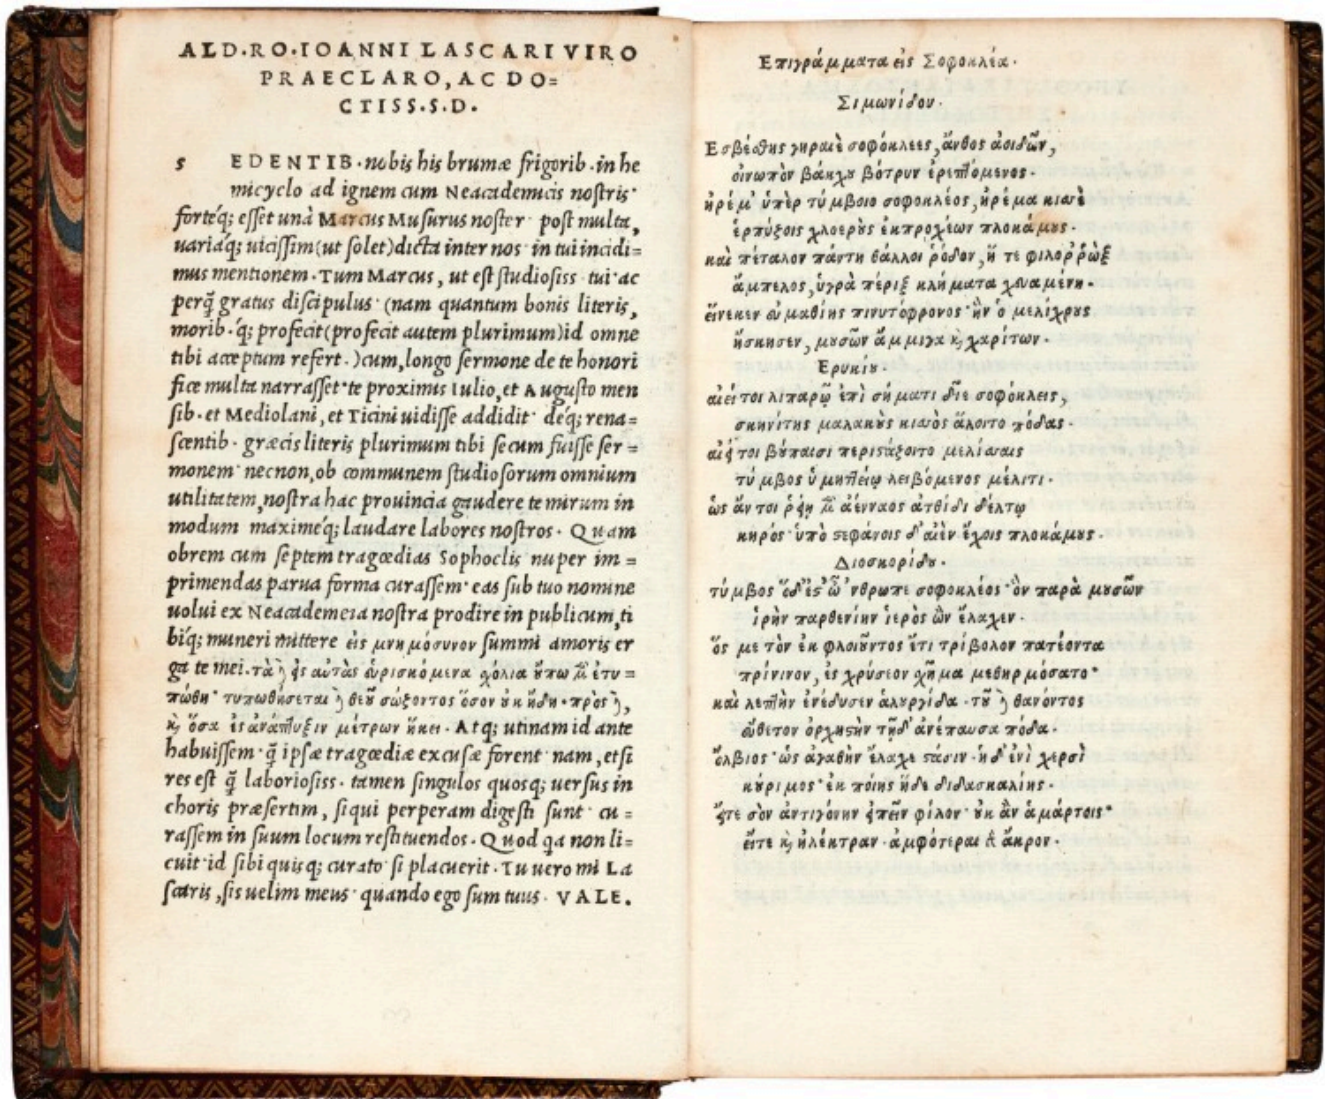 ALD.RO.IOANNI LASCARI VIRO
PRAECLARO, AC DO=
CTISS.S.D.
s EDENTIB. nobis his brumæ frigorib. in he
micyclo ad ignem cum Neacademicis nostris·
forteq; esset unà Marcus Musurus noster· post multa,
uariaq; uicissim (ut solet) dicta inter nos· in tui incidi=
mus mentionem. Tum Marcus, ut est studiosiss· tui· ac
perq̃ gratus discipulus· (nam quantum bonis literis,
morib.q; profecit (profecit autem plurimum) id omne
tibi acceptum refert.) cum, longo sermone de te honori
fice multa narrasset· te proximis Iulio, et Augusto men
sib. et Mediolani, et Ticini uidisse addidit· deq; rena=
scentib. græcis literis plurimum tibi secum fuisse ser=
monem· necnon, ob communem studiosorum omnium
utilitatem, nostra hac prouincia gaudere te mirum in
modum maximeq; laudare labores nostros. Quam
obrem cum septem tragœdias Sophoclis nuper im=
primendas parua forma curassem· eas sub tuo nomine
uolui ex Neacademeia nostra prodire in publicum, ti
biq; muneri mittere εἰς μνημόσυνον summi amoris er
ga te mei. τὰ δὲ εἰς αὐτὰς εὑρισκόμενα σχόλια οὔπω μὲν ἐτυ=
πώθη· τυπωθήσεται δὲ θεοῦ σώζοντος ὅσον οὐκ ἤδη. πρὸς δὲ,
καὶ ὅσα εἰς ἀνάπτυξιν μέτρων ἥκει. Atq; utinam id ante
habuissem· q̃ ipsæ tragœdiæ excusæ forent· nam, etsi
res est q̃ laboriosiss. tamen singulos quosq; uersus in
choris præsertim, siqui perperam digesti sunt· cu=
rassem in suum locum restituendos. Quod qa non li=
cuit· id sibi quisq; curato· si placuerit. Tu uero mi La
scaris, sis uelim meus· quando ego sum tuus. VALE.
Επιγράμματα εἰς Σοφοκλέα.
Σιμωνίδου.
Εσβέσθης γηραιὲ σοφόκλεες, ἄνθος ἀοιδῶν,
οἰνωπὸν βάκχου βότρυν ἐρεπτόμενος.
ἠρέμ' ὑπὲρ τύμβοιο σοφοκλέος, ἠρέμα κισσὲ
ἑρπύζοις χλοεροὺς ἐκπροχέων πλοκάμους.
καὶ πέταλον πάντη θάλλοι ῥόδον, ἥ τε φιλορρὼξ
ἄμπελος, ὑγρὰ πέριξ κλήματα χευαμένη.
εἵνεκεν εὐμαθίης πινυτόφρονος· ἣν ὁ μελιχρὸς
ἤσκησεν, μουσῶν ἄμμιγα καὶ χαρίτων.
Ερυκίου.
αἰεί τοι λιπαρῷ ἐπὶ σήματι δῖε σοφόκλεις,
σκηνίτης μαλακοὺς κισσὸς ἅλοιτο πόδας.
αἰεί τοι βούπαισι περιστάζοιτο μελίσσαις
τύμβος ὑμηττείῳ λειβόμενος μέλιτι.
ὡς ἄν τοι ῥείη μὲν ἀένναος ἀτθίδι δέλτῳ
κηρὸς· ὑπὸ στεφάνοις δ' αἰὲν ἔχοις πλοκάμους.
Διοσκορίδου.
τύμβος ὅδ' ἔς' ὦ 'νθρωπε σοφοκλέος· ὃν παρὰ μουσῶν
ἱρὴν παρθενίην ἱερὸς ὢν ἔλαχεν.
ὅς με τὸν ἐκ φλοιοῦντος ἔτι τρίβολον πατέοντα
πρίνινον, ἐς χρύσεον σχῆμα μεθηρμόσατο·
καὶ λεπτὴν ἐνέδυσεν ἁλουργίδα. τοῦ δὲ θανόντος
εὔθετον ὀρχηστὴν τῇδ' ἀνέπαυσα πόδα.
ὄλβιος· ὡς ἀγαθὴν ἔλαχε στάσιν. ἡ δ' ἐνὶ χερσὶ
κούριμος· ἐκ ποίης ἥδε διδασκαλίης.
εἴτε σὸν ἀντιγόνην εἰπεῖν φίλον· οὐκ ἂν ἁμάρτοις·
εἴτε καὶ ἠλέκτραν. ἀμφότεραι γὰρ ἄκρον.